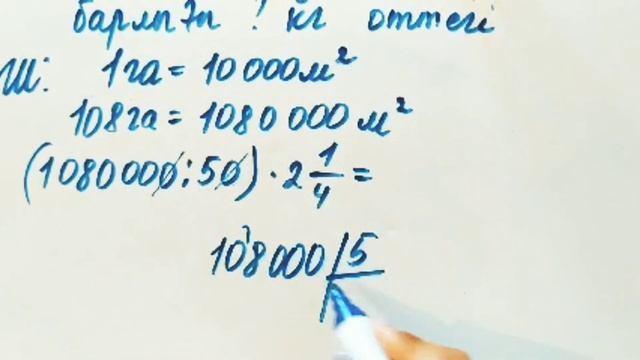 барлығы ? кг оттегі
Ш: 1 га = 10 000 м²
108 га = 1080 000 м²
(1080 000 : 50) · 2 1/4 =
108000 | 5